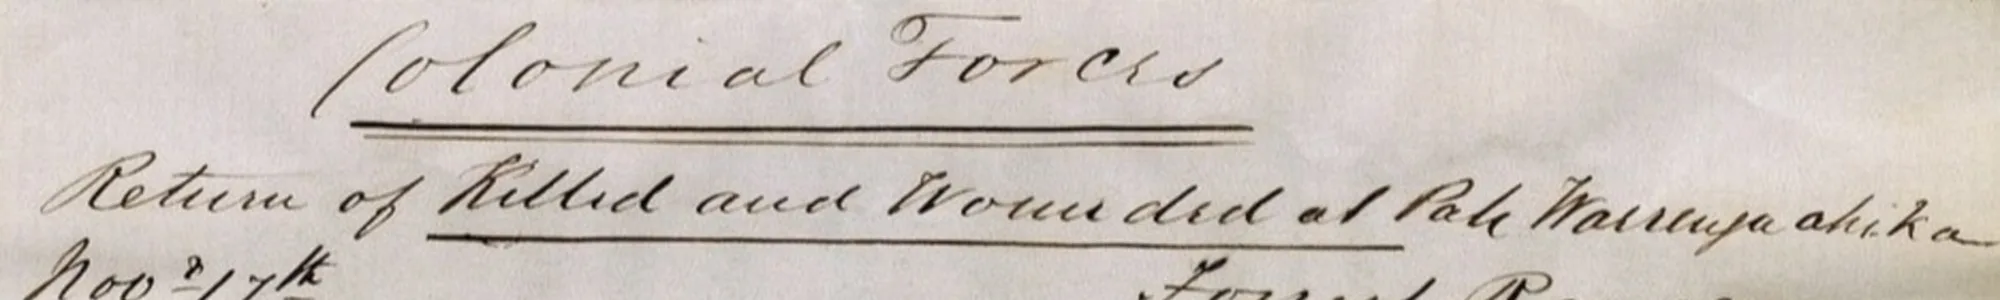 Colonial Forces
Return of Killed and Wounded at Pah Warrenga ahika
Novr 17th Forrest